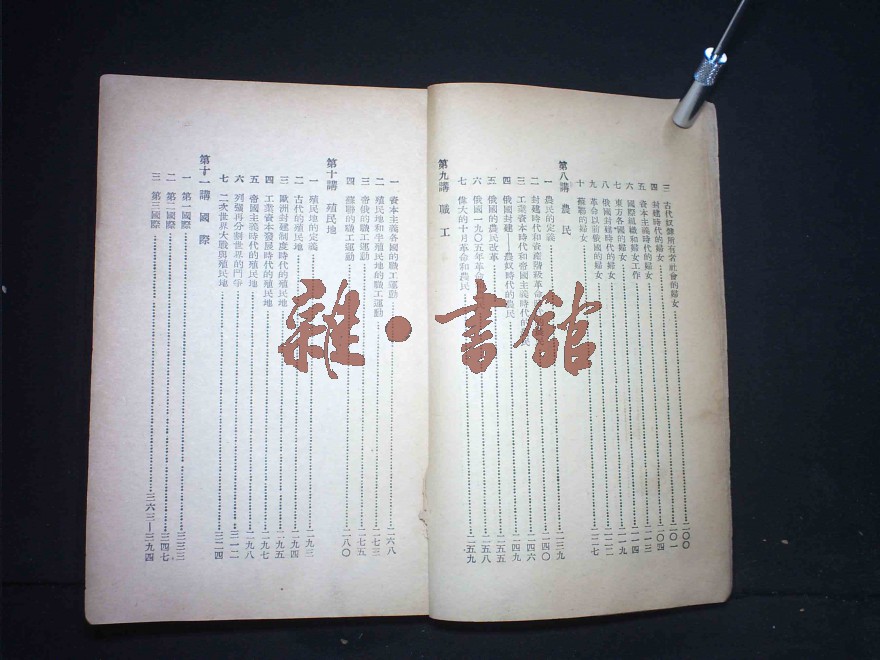 三 古代奴隸所有者社會的婦女……二〇〇
四 封建時代的婦女……二〇一
五 資本主義時代的婦女……二〇四
六 國際組織和婦女工作……二一三
七 東方各國的婦女……二一九
八 俄國封建時代的婦女……二二二
九 革命以前俄國的婦女
十 蘇聯的婦女……二二七
第八講 農民
一 農民的定義……二三九
二 封建時代和資產階級革命……二四〇
三 工業資本時代和帝國主義時代……二四六
四 俄國封建——農奴時代的農民……二四九
五 俄國的農民改革……二五五
六 俄國一九〇五年革命……二五八
七 偉大的十月革命和農民……二五九
第九講 職工
一 資本主義各國的職工運動……二六八
二 殖民地和半殖民地的職工運動……二七三
三 帝俄的職工運動……二七五
四 蘇聯的職工運動……二八〇
第十講 殖民地
一 殖民地的定義……二九三
二 古代的殖民地……二九四
三 歐洲封建制度時代的殖民地……二九五
四 工業資本發展時代的殖民地……二九七
五 帝國主義時代的殖民地……二九八
六 列強再分割世界的鬥爭……三一二
七 二次世界大戰與殖民地……三二四
第十一講 國際
一 第一國際……三三三
二 第二國際……三四七
三 第三國際……三六三—三九四
雜·書館